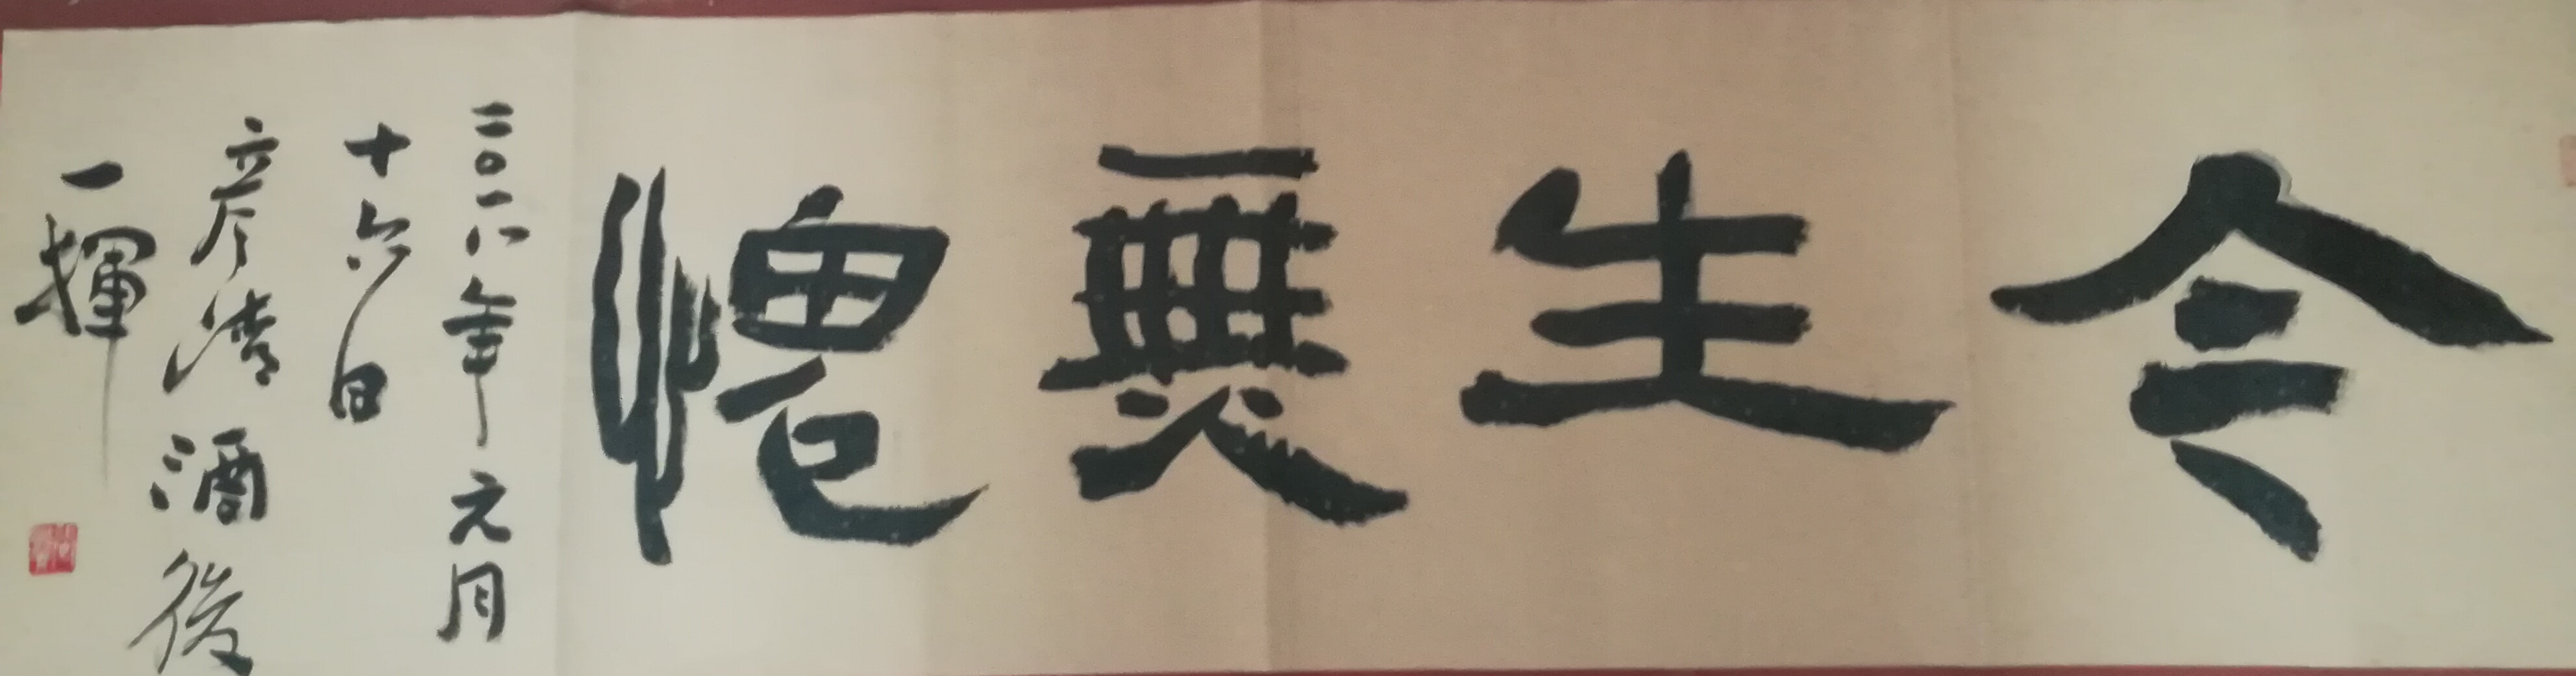 今生無愧
二〇一八年元月
十六日
酒後
一揮